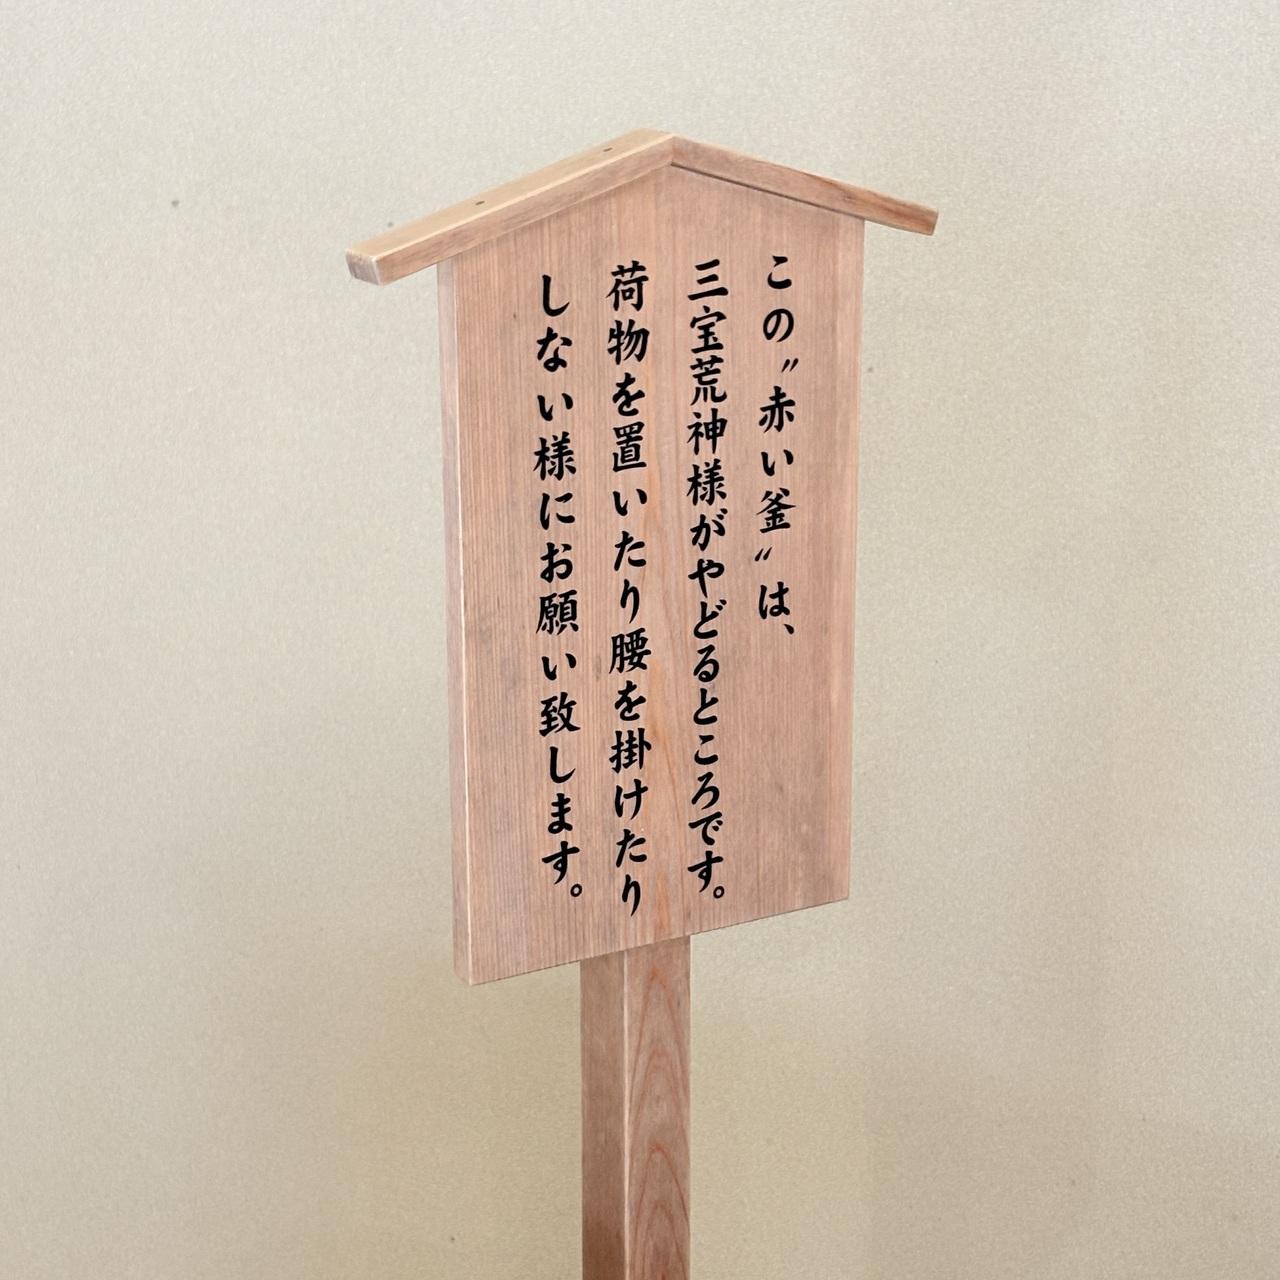 この〝赤い釜〟は、
三宝荒神様がやどるところです。
荷物を置いたり腰を掛けたり
しない様にお願い致します。